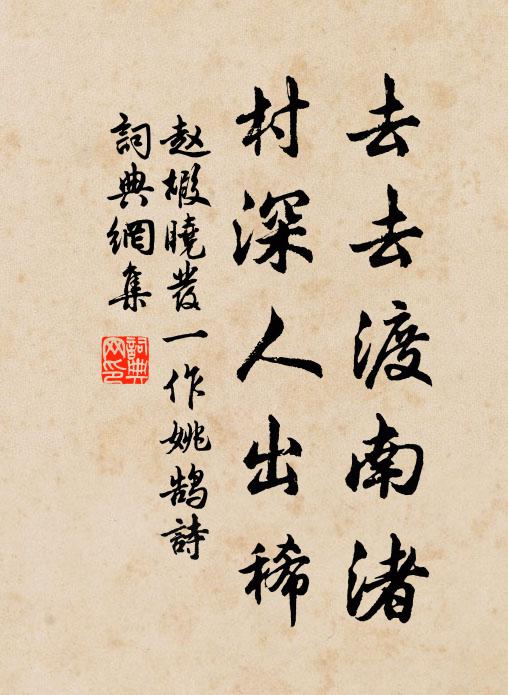 去去渡南渚
村深人出稀
赵橄曉發一作姚鹄詩
詞典網集
詞典网印